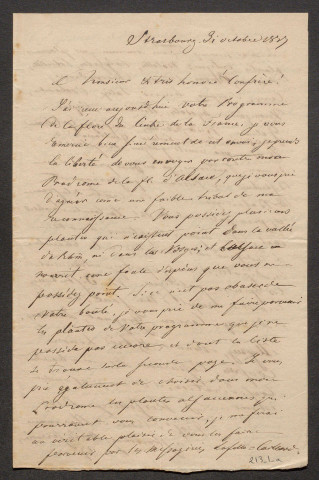 Strasbourg 31 octobre 18
Monsieur et très honoré Confrère!
J'ai reçu aujourd'hui votre Programme
de la flore du Centre de la France. je vous
remercie bien sincèrement de cet envoi, je prends
la liberté de vous envoyer par contre mon
Prodrome de la fl. d'Alsace, que je vous prie
d'agréer comme un faible tribut de ma
reconnaissance. Vous possédez plusieurs
plantes qui n'existent point dans la vallée
du Rhin, ni dans les Vosges; et l'Alsace en
nourrit une foule d'espèces que vous ne
possédez point. Si ce n'est pas abuser de
votre bonté, je vous prie de me faire parvenir
les plantes de votre programme que je ne
possède pas encore et dont la liste
se trouve sur la seconde page. Je vous
prie également de choisir dans mon
Prodrome les plantes alsaciennes qui
pourraient vous convenir, je me ferai
un véritable plaisir de vous les faire
parvenir par les Messageries Laffitte-Caillard.